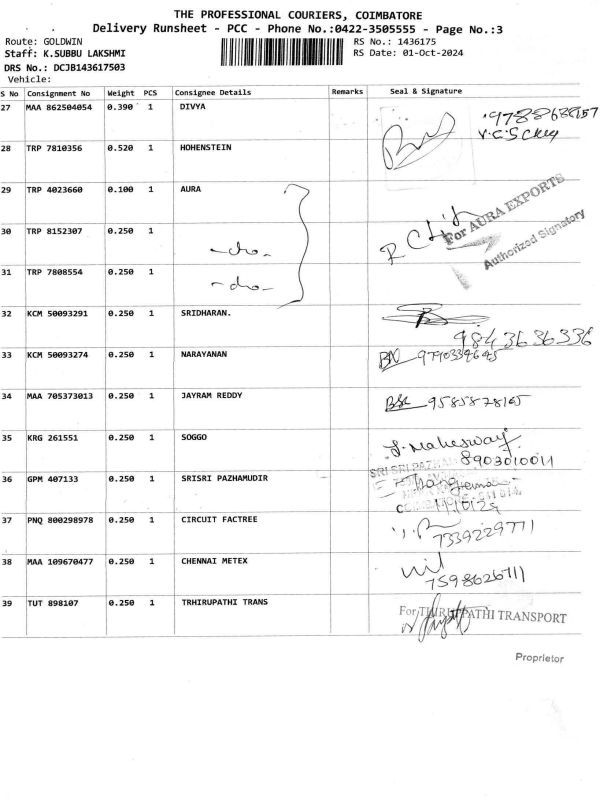 THE PROFESSIONAL COURIERS, COIMBATORE
Delivery Runsheet - PCC - Phone No.:0422-3505555 - Page No.:3
Route: GOLDWIN
RS No.: 1436175
Staff: K.SUBBU LAKSHMI
RS Date: 01-Oct-2024
DRS No.: DCJB143617503
Vehicle:
S No Consignment No Weight PCS Consignee Details Remarks Seal & Signature
27 MAA 862504054 0.390 1 DIVYA
28 TRP 7810356 0.520 1 HOHENSTEIN
29 TRP 4023660 0.100 1 AURA
For AURA EXPORTS
30 TRP 8152307 0.250 1 -do-
Authorized Signatory
31 TRP 7808554 0.250 1 -do-
32 KCM 50093291 0.250 1 SRIDHARAN.
9843636336
33 KCM 50093274 0.250 1 NARAYANAN
34 MAA 705373013 0.250 1 JAYRAM REDDY
9585878165
35 KRG 261551 0.250 1 SOGGO
8903010011
36 GPM 407133 0.250 1 SRISRI PAZHAMUDIR
37 PNQ 800298978 0.250 1 CIRCUIT FACTREE
7339229771
38 MAA 109670477 0.250 1 CHENNAI METEX
7598626711
39 TUT 898107 0.250 1 TRHIRUPATHI TRANS
For THIRUPATHI TRANSPORT
Proprietor